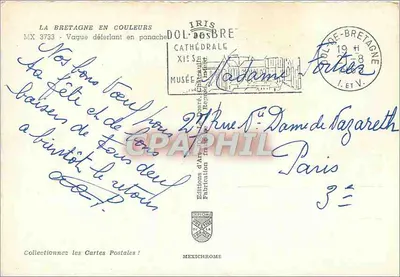 LA BRETAGNE EN COULEURS
MX 3733 - Vague déferlant en panache
IRIS
DOL
CATHÉDRALE
XIIe S.
MUSÉE
DOL-DE-BRETAGNE
19 H
8
I. et V.
Nos bons Vœux pour
ta fête et de bons
baisers de tous deux
a bientôt le retour
Madame Fortier
27 Rue Ne Dame de Nazareth
Paris
3e
CPAPHIL
Collectionnez les Cartes Postales !
MEXICHROME